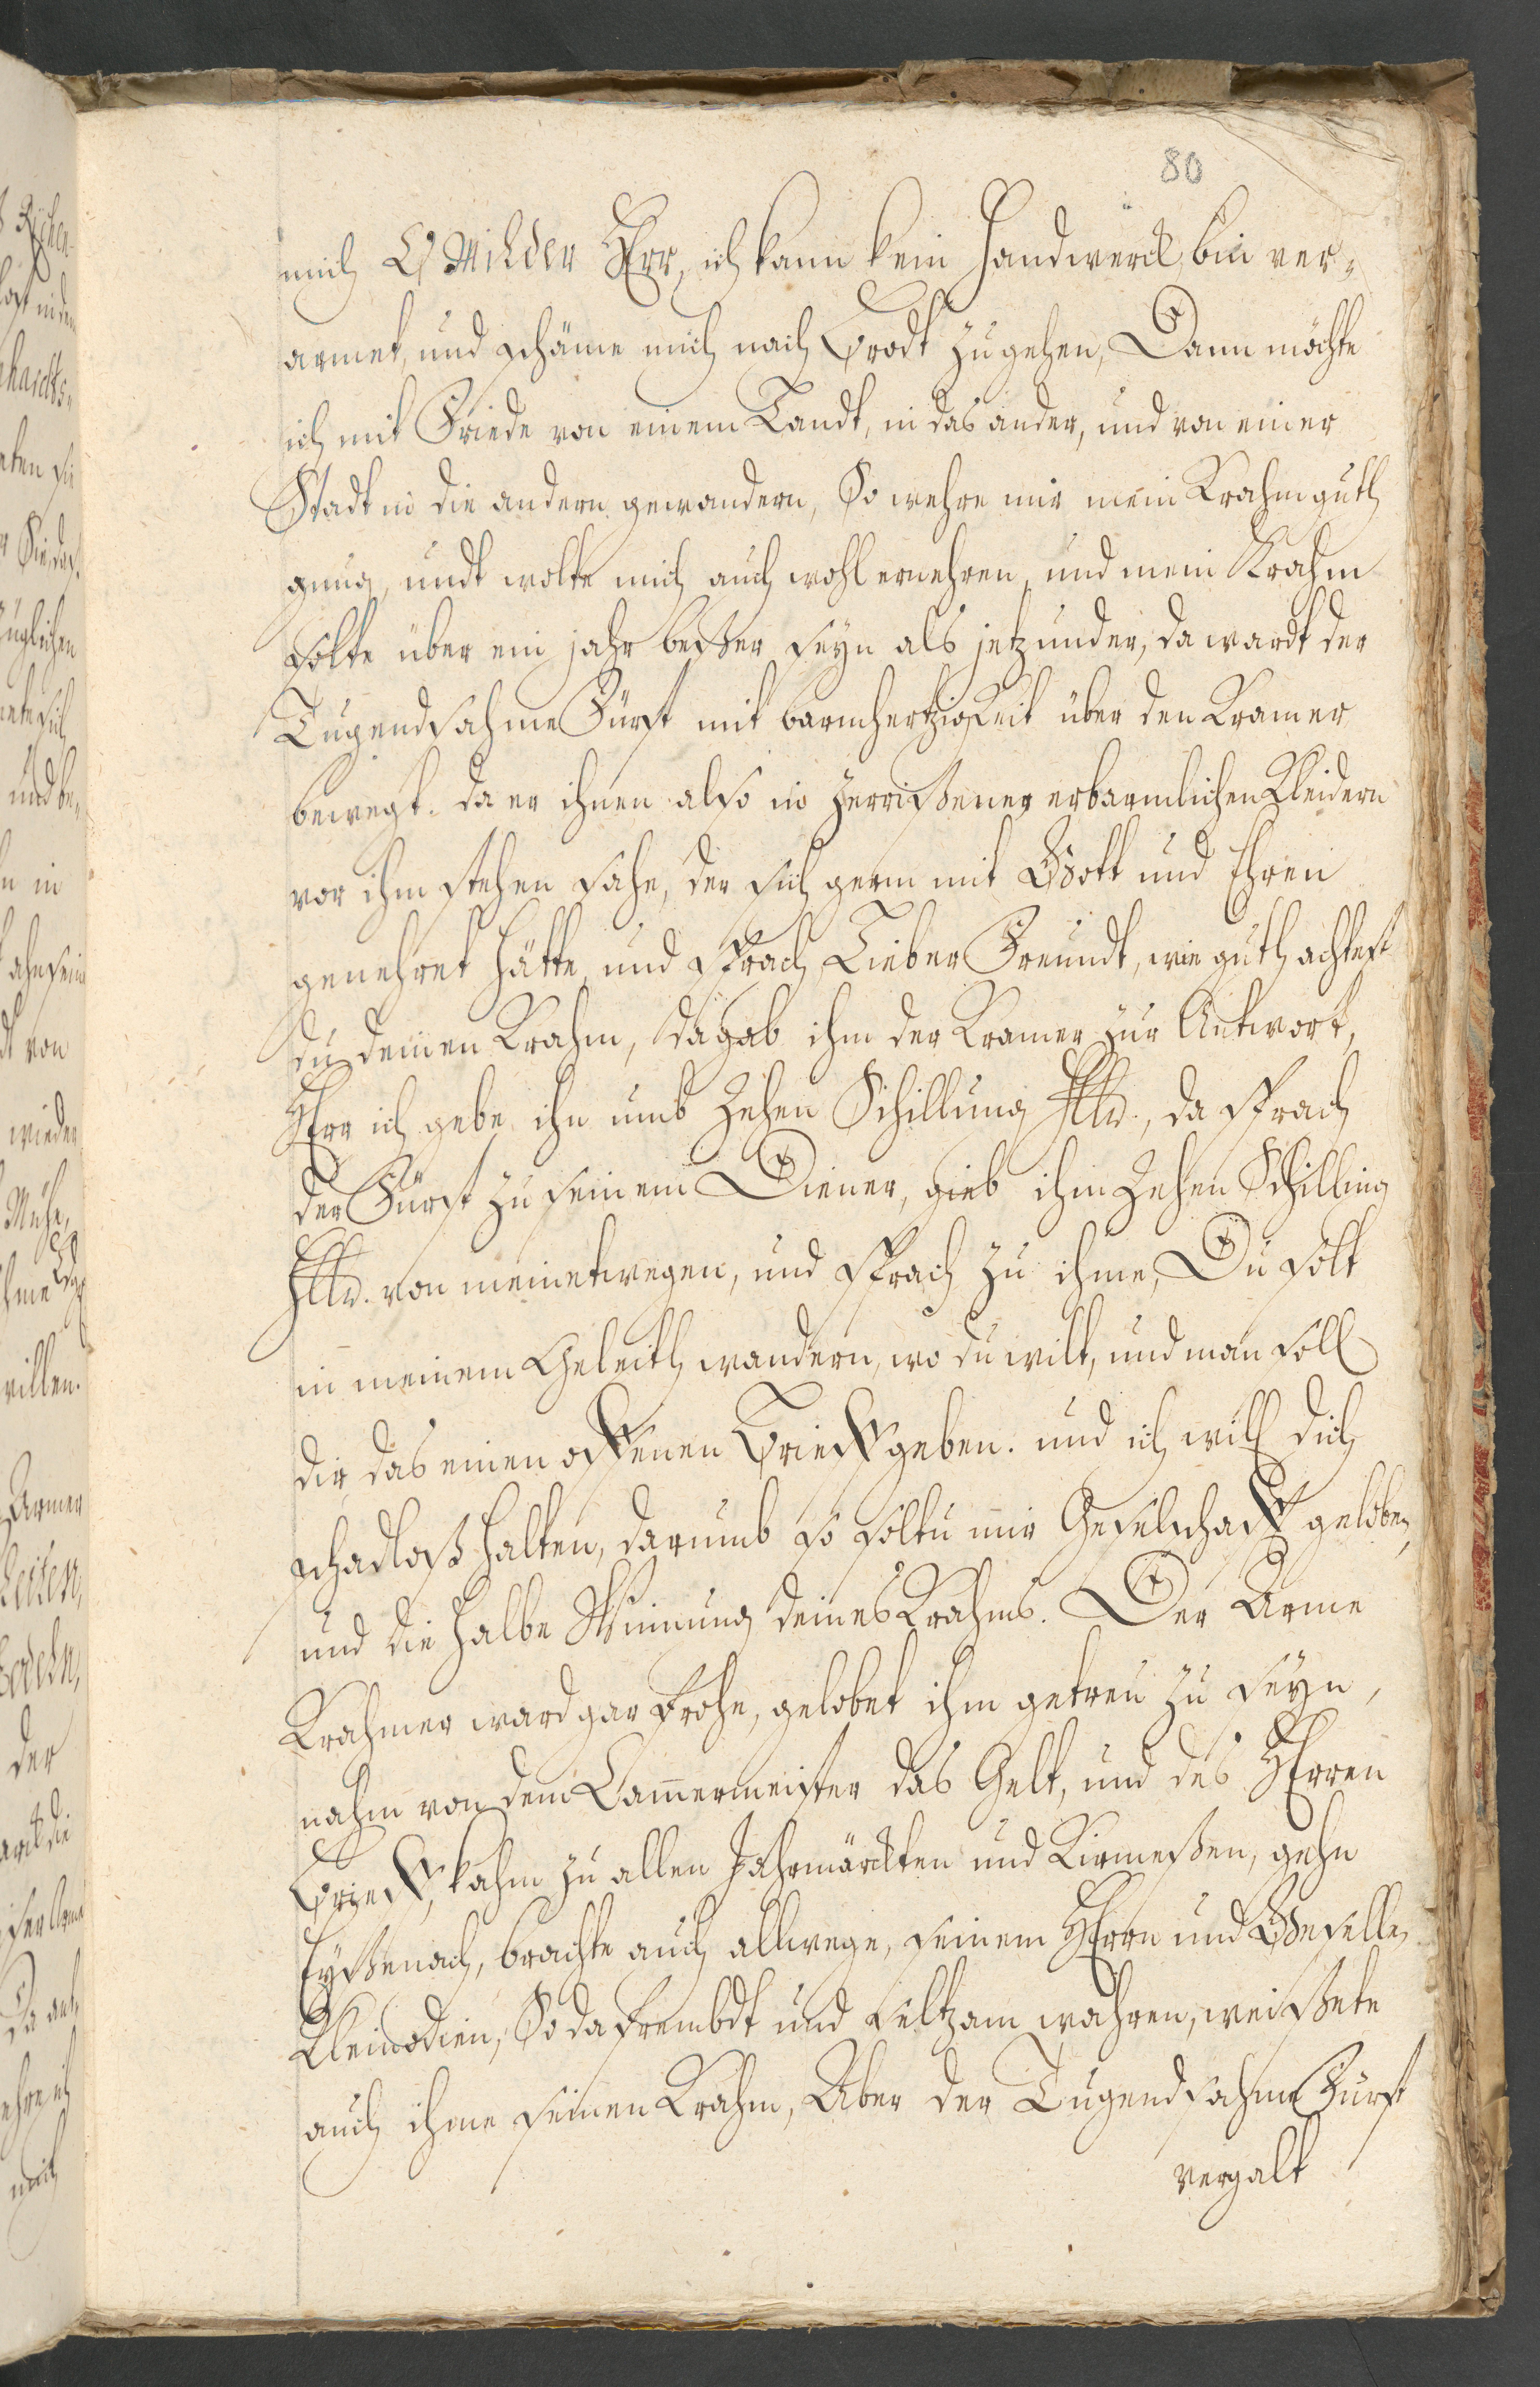 80
mich O Milder HErr, ich kann kein Handwerck, bin ver-
armet, und schäme mich nach Brodt zu gehen, Dann möchte
ich mit Friede von einem Landt, in das ander, und von einer
Stadt in die andern gewandern, So wehre mir mein Krahm guth
gnug, undt wolte mich auch wohl ernehren, und mein Krahm
solte über ein jahr beßer seyn als jetzunder, da wardt der
Tugendsahme Fürst mit barmhertzigkeit über den Kramer
bewegt. da er ihnen also in zerrißener erbarmlichen Kleidern
vor ihm stehen sahe, der sich gern mit Gott und Ehren
genehret hätte, und sprach, Lieber Freundt, wie guth achtest
du deinen Krahm, da gab ihm der Kramer zur Antwort,
HErr ich gebe ihn umb Zehen Schillung Hllr., da sprach
der Fürst zu seinem Diener, gieb ihm Zehen Schilling
Hllr. von meinetwegen, und sprach zu ihme, Du solt
in meinem Geleith wandern, wo du wilt, und man soll
dir das einen offenen Brieff geben. und ich will dich
schadloß halten, darumb so soltu mir Geselschafft geloben,
und die halbe Winnung deines Krahms. Der Arme
Krahmer ward gar frohe, gelobet ihm getreu zu seyn,
nahm von dem Cam̄ermeister das Gelt, und des HErren
Brieff, kahm zu allen Jahrmärckten und Kirmeßen, gehn
Eyßenach, brachte auch allwege, seinem HErrn und Gesellen
Kleinodien, So da frembdt und seltzam wahren, weißete
auch ihme seinen Krahm, Aber der Tugendsahme Fürst
vergalt